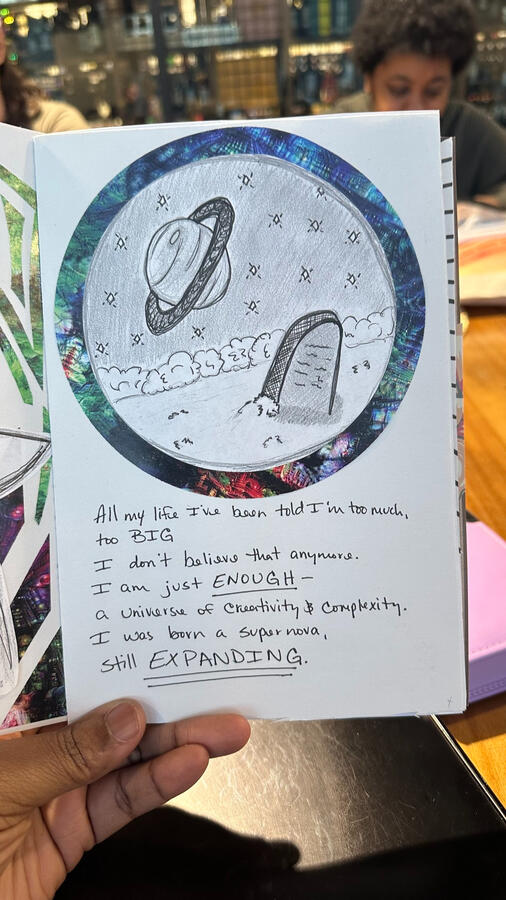 All my life I've been told I'm too much,
too BIG
I don't believe that anymore.
I am just ENOUGH –
a universe of creativity & complexity.
I was born a supernova,
still EXPANDING.